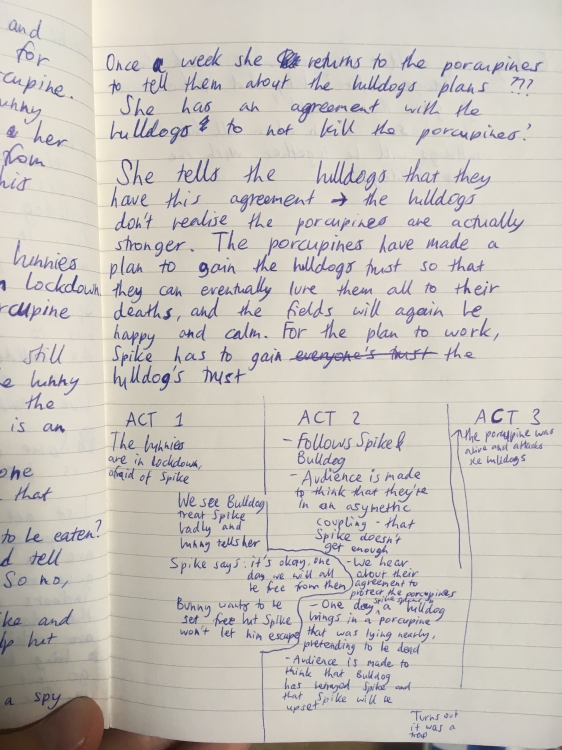 and
for
cupine.
unny
her
from
his
bunnies
lockdown
rcupine
still
e bunny
the
is an
one
that
to be eaten?
d tell
So no,
ike and
lp but
a spy
Once a week she returns to the porcupines
to tell them about the bulldogs plans ???
She has an agreement with the
bulldogs to not kill the porcupines?
She tells the bulldogs that they
have this agreement → the bulldogs
don't realise the porcupines are actually
stronger. The porcupines have made a
plan to gain the bulldogs trust so that
they can eventually lure them all to their
deaths, and the fields will again be
happy and calm. For the plan to work,
Spike has to gain everyone's trust the
bulldog's trust
ACT 1
The bunnies
are in lockdown,
afraid of Spike
We see Bulldog
treat Spike
badly and
bunny tells her
Spike says: it's okay, one
day we will all
be free from them
Bunny wants to be
set free but Spike
won't let him escape
ACT 2
- Follows Spike &
Bulldog
- Audience is made
to think that they're
in an asymetric
coupling - that
Spike doesn't
get enough
- We hear
about their
agreement to
protect the porcupines
- One day, a bulldog
brings in a porcupine
that was lying nearby,
pretending to be dead
- Audience is made to
think that Bulldog
has betrayed Spike and
that Spike will be
upset
ACT 3
the porcupine was
alive and attacks
the bulldogs
Turns out
it was a
trap